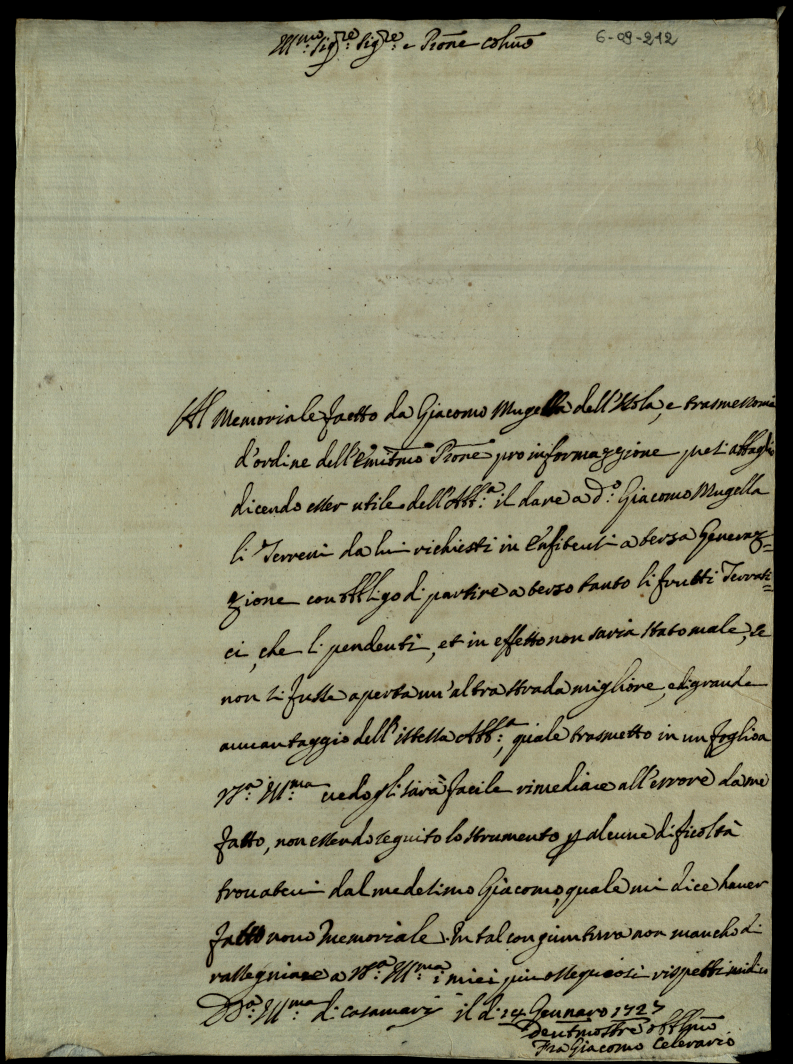 Ill:mo Sig:re Sig:re e Prōne colmo
6-09-212
Al Memoriale fatto da Giacomo Mugella dell'Isola, e trasmessomi
d'ordine dell'Emitmo Prōne pro informazzione
dicendo esser utile dell'Abb:a il dare a d:o Giacomo Mugella
li Terreni da lui richiesti in Enfiteusi a terza Generaz=
zione con obbligo di partire a terzo tanto li frutti Terrati=
ci, che li pendenti, et in effetto non saria stato male, se
non si fusse aperta un'altra strada migliore, e di grande
avvantaggio dell'istessa Abb:a, quale trasmetto in un foglio a
V:a Ill:ma credo gli sarà facile rimediare all'errore da me
fatto, non essendo seguito lo strumento p alcune dificoltà
trovateci dal medesimo Giacomo, quale mi dice haver
fatto novo Memoriale. In tal congiuntura non mancho di
rassegniare a V:a Ill:ma i miei più ossequiosi rispetti
D.V:a Ill:ma di casamari il di 14 Gennaro 1727
Fra Giacomo Celerario